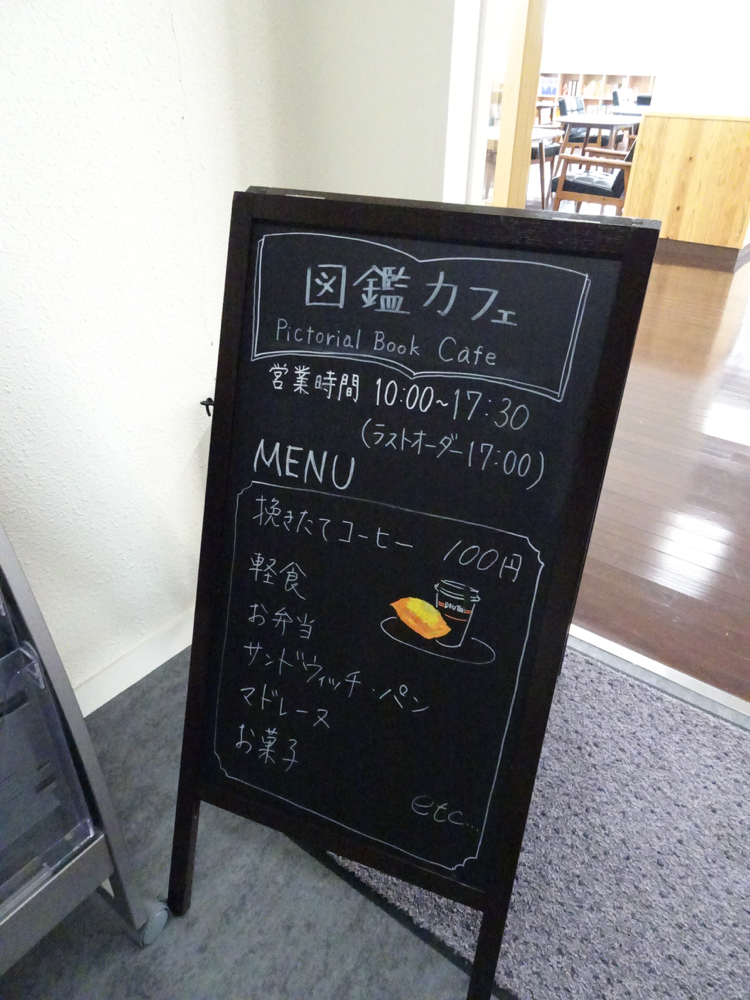 図鑑カフェ
Pictorial Book Cafe
営業時間 10:00~17:30
(ラストオーダー17:00)
MENU
挽きたてコーヒー 100円
軽食
お弁当
サンドウィッチ・パン
マドレーヌ
お菓子
etc...